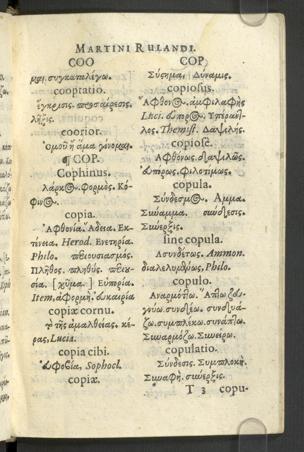 MARTINI RULANDI.
COO
μαι. συγκαταλέγω.
cooptatio.
ἔγκρισις. προσαίρεσις.
λῆξις.
coorior.
ὁμοῦ ἢ ἅμα γίνομαι.
¶ COP.
Cophinus.
λάρκος. φορμός. Κό-
φινος.
copia.
Ἀφθονία. Ἄδεια. Ἐκ-
τένεια. Herod. Ευετηρία.
Philo. περιουσιασμός.
Πλῆθος. πληθύς. περιου-
σία. [χύμα.] Εὐπορία.
Item, ἀφορμή. εὐκαιρία
copiæ cornu.
τὸ τῆς ἀμαλθείας, κέ-
ρας, Lucia.
copia cibi.
εὐφοβία, Sophocl.
copiæ.
COP
Σύστημα. Δύναμις.
copiosus.
Ἄφθονος. ἀμφιλαφής
Luci. εὔπορος.
λος. Themist. Δαψιλής.
copiose.
Ἀφθόνως. δαψιλῶς.
εὐπόρως. Φιλοτίμως.
copula.
Σύνδεσμος. Ἅμμα.
Σύναμμα. σύνδεσις.
Σύνερξις.
sine copula.
Ἀσυνδέτως. Ammon.
διαλελυμένως, Philo.
copulo.
Ἁναρμόττω.
γνύω. συνδέω.
ζω. συμπλέκω. συνάπτω.
Συναρμόζω. Συνείρω.
copulatio.
Σύνδεσις. Συμπλοκή.
Συναφή. σύνερξις.
T 3 copu-